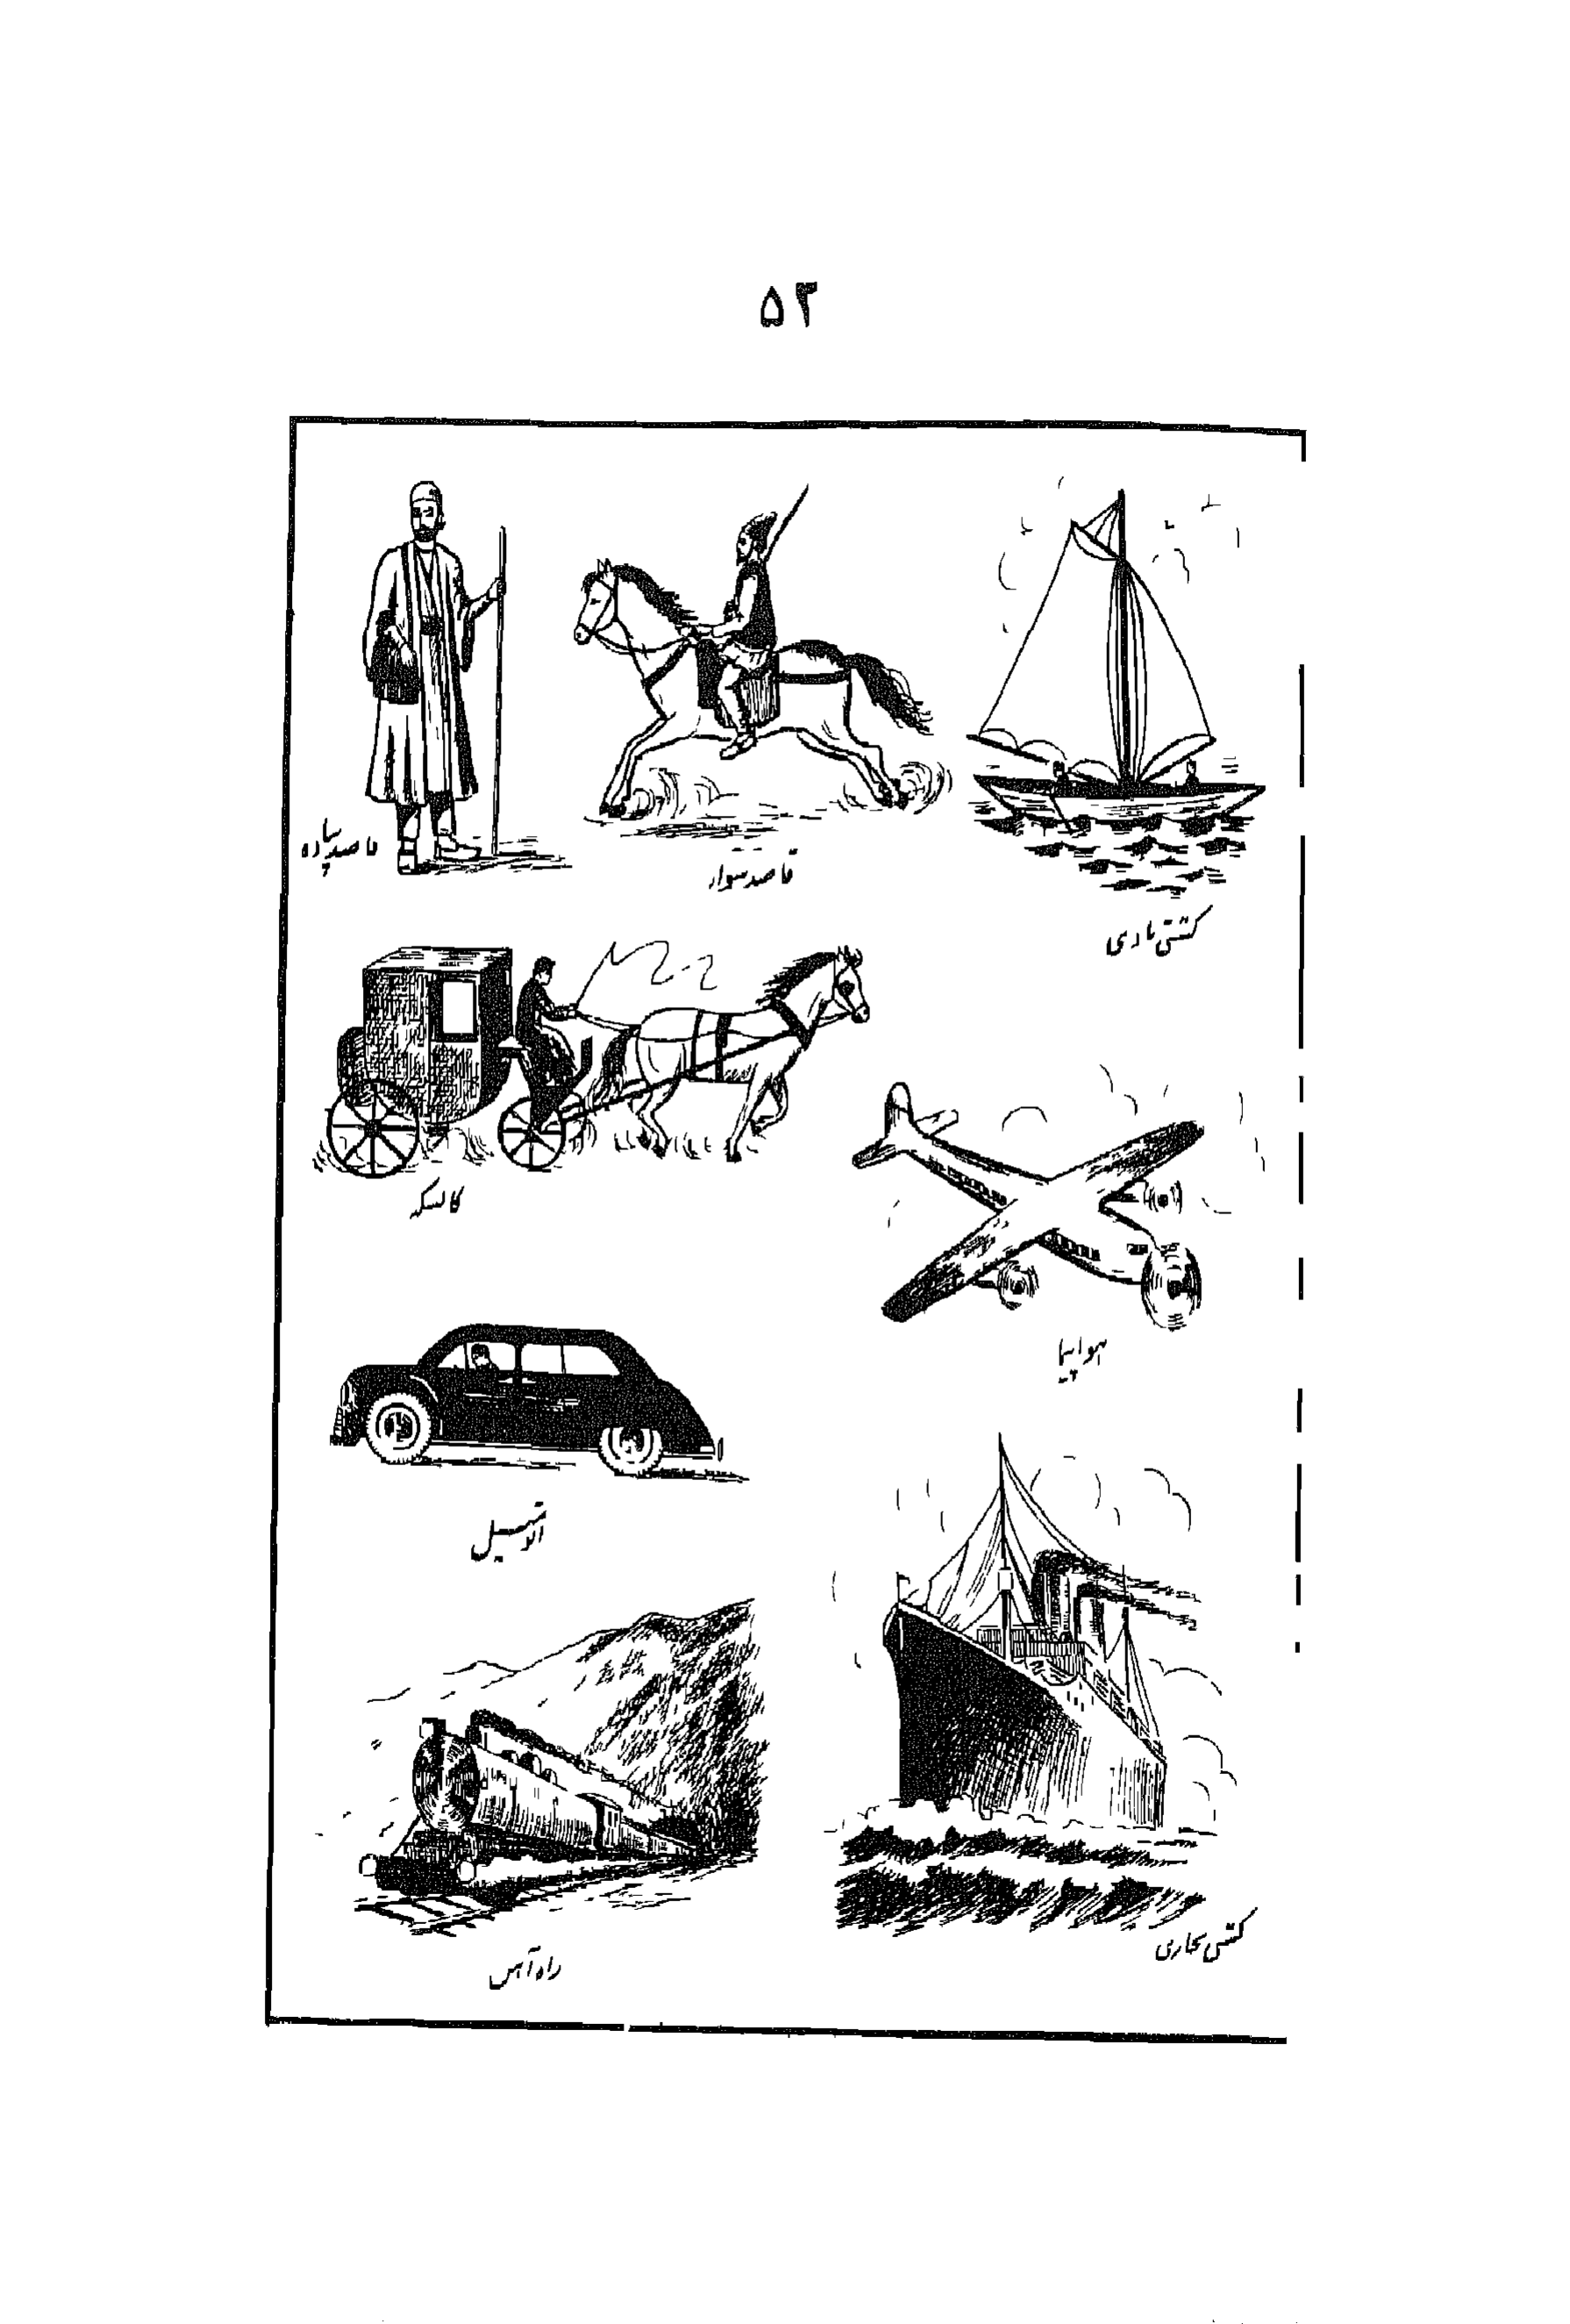 ۵۲
کشتی بادی
قاصد سوار
قاصد پیاده
کالسکه
هواپیما
اتومبیل
کشتی بخاری
راه آهن